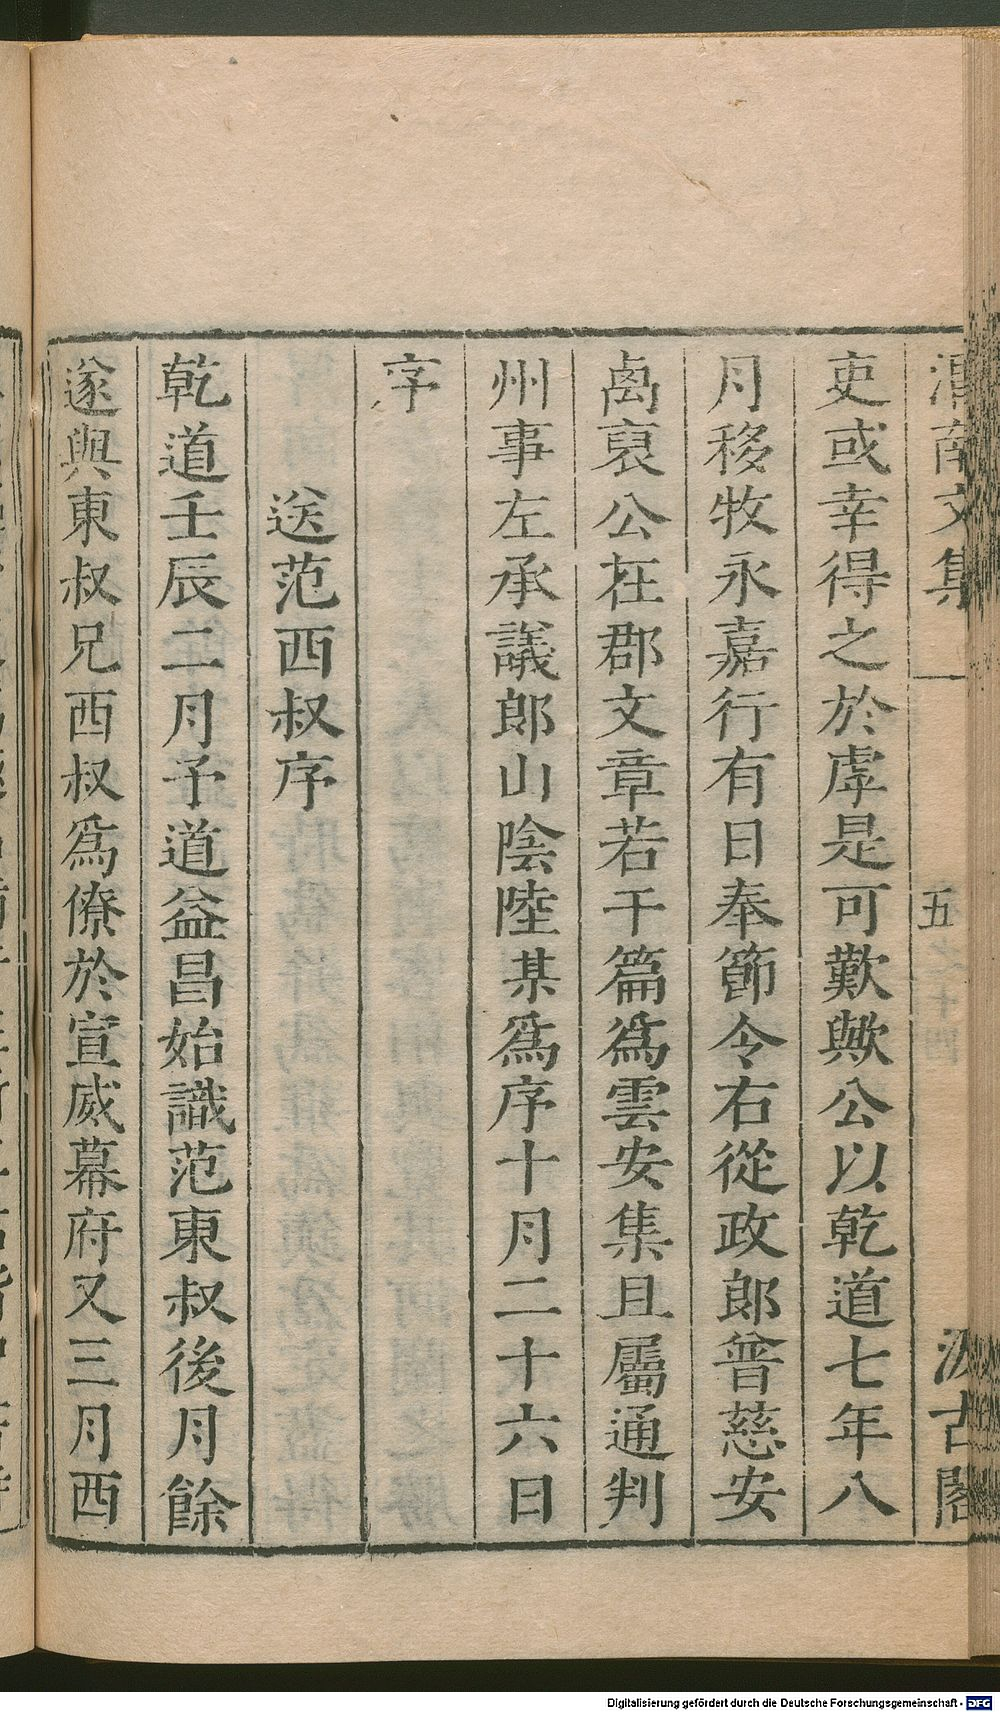 渭南文集 五 汲古閣
吏或幸得之於虖是可歎歟公以乾道七年八
月移牧永嘉行有日奉節令右從政郎普慈安
卨裒公在郡文章若干篇爲雲安集且屬通判
州事左承議郎山陰陸某爲序十月二十六日
序
送范西叔序
乾道壬辰二月予道益昌始識范東叔後月餘
遂與東叔兄西叔爲僚於宣威幕府又三月西
Digitalisierung gefördert durch die Deutsche Forschungsgemeinschaft - DFG